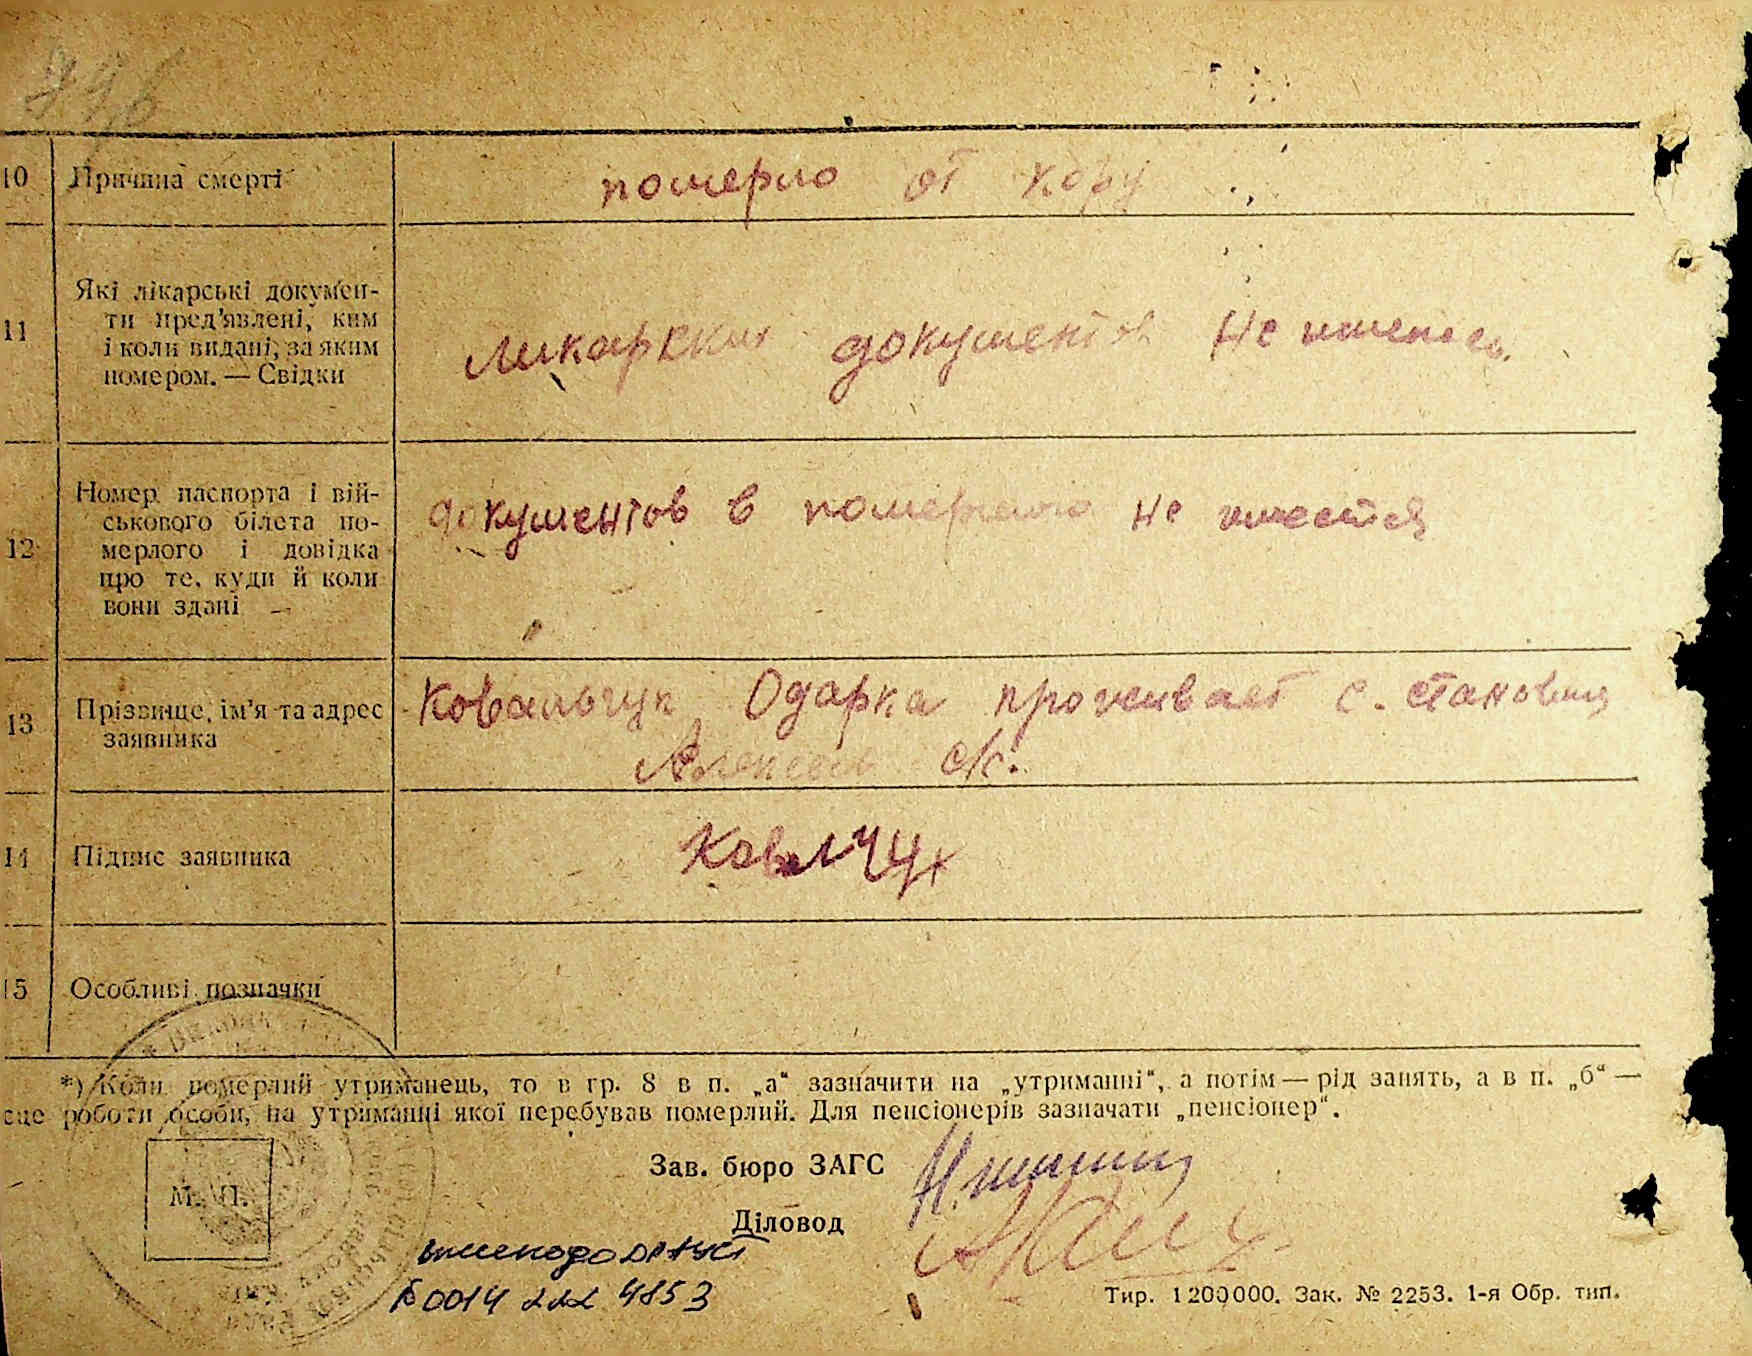 10 Причина смерті померло от кору
11 Які лікарські докумен-
ти пред'явлені, ким
і коли видані, за яким
номером. — Свідки
ликарских документов не имелось
12 Номер паспорта і вій-
ськового білета по-
мерлого і довідка
про те, куди й коли
вони здані
документов в помершого не имеется
13 Прізвище, ім'я та адрес
заявника
Ковальчук Одарка проживает с. Становищ
с/с.
14 Підпис заявника Ковлчук
15 Особливі позначки
*) Коли померлий утриманець, то в гр. 8 в п. „а“ зазначити на „утриманні“, а потім — рід занять, а в п. „б“ —
сце роботи особи, на утриманні якої перебував померлий. Для пенсіонерів зазначати „пенсіонер“.
М. П.
Зав. бюро ЗАГС
Діловод
0014 4853
Тир. 1200000. Зак. № 2253. 1-я Обр. тип.